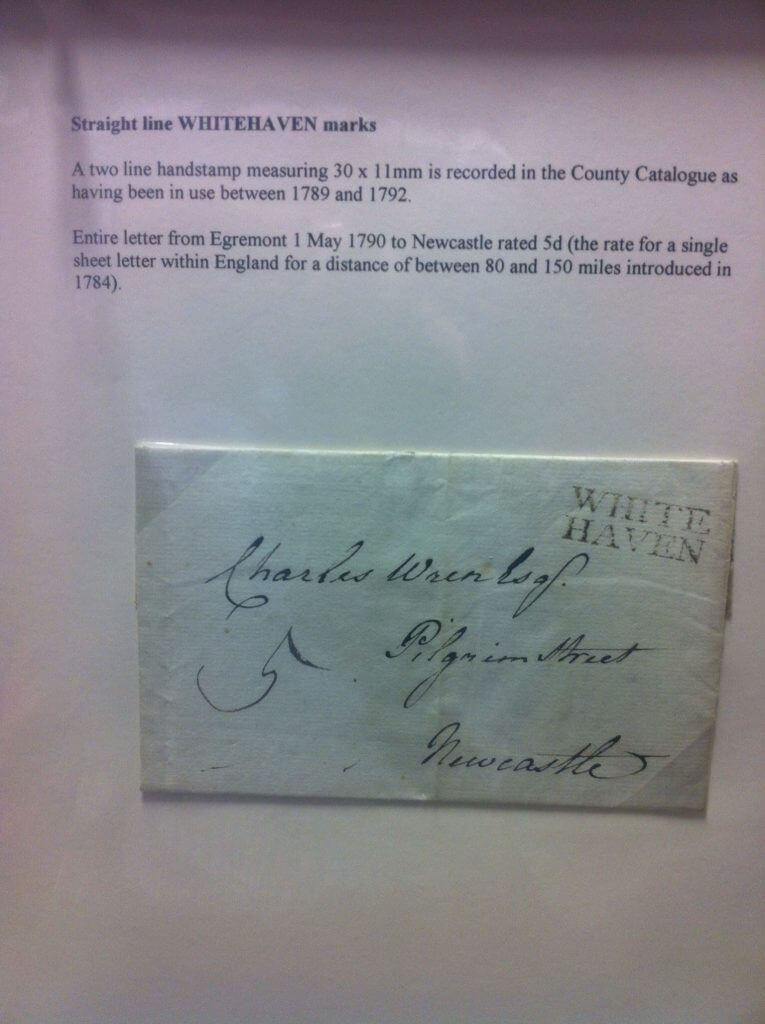 Straight line WHITEHAVEN marks
A two line handstamp measuring 30 x 11mm is recorded in the County Catalogue as
having been in use between 1789 and 1792.
Entire letter from Egremont 1 May 1790 to Newcastle rated 5d (the rate for a single
sheet letter within England for a distance of between 80 and 150 miles introduced in
1784).
WHITE
HAVEN
Charles Wren Esqr.
Pilgrim Street
5
Newcastle